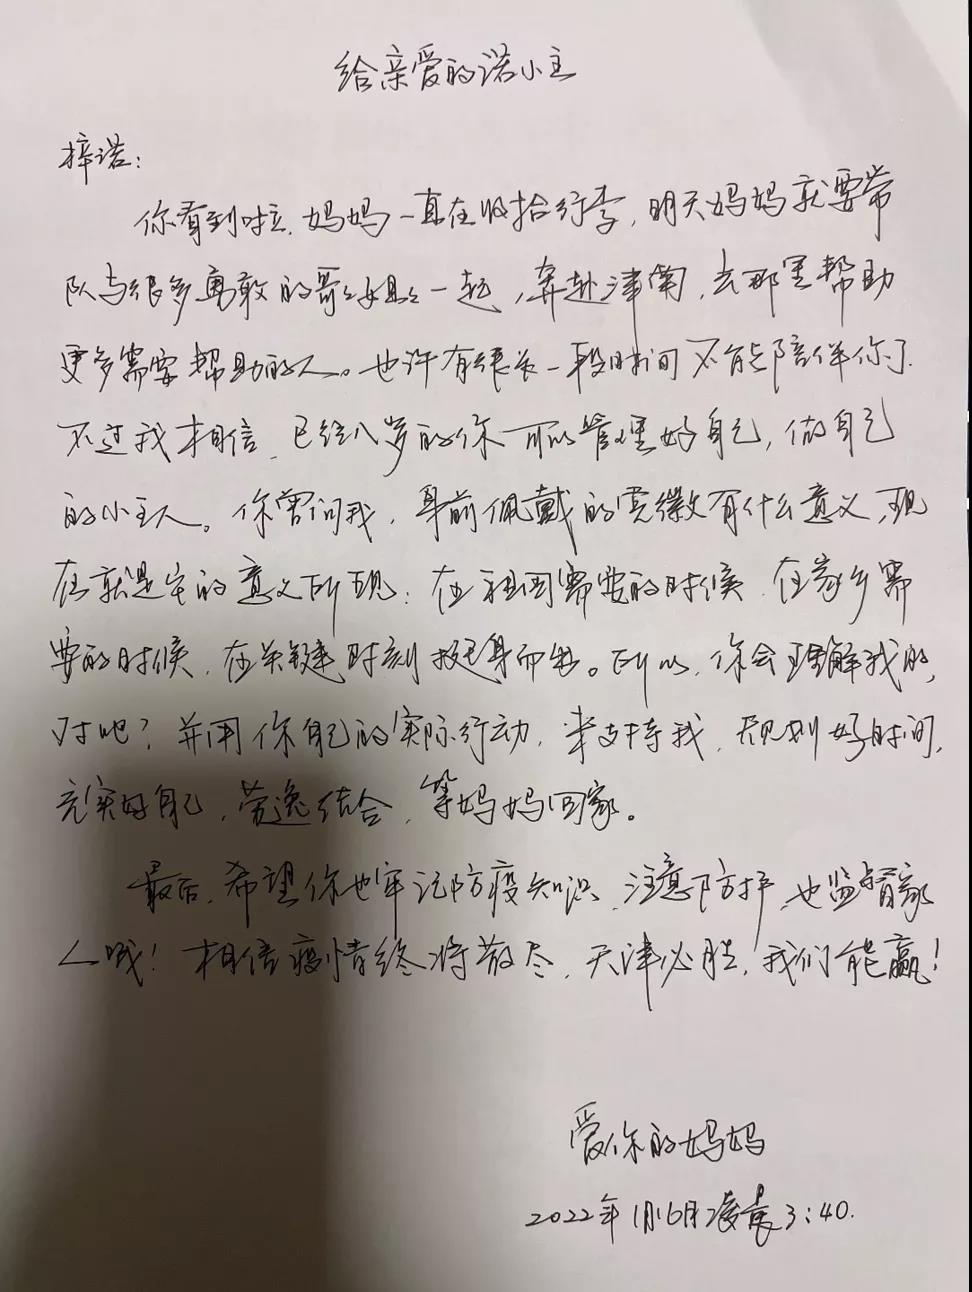 给亲爱的诺小主
梓诺：
你看到啦，妈妈一直在收拾行李，明天妈妈就要带
队与很多勇敢的哥哥姐姐一起，奔赴津南，去那里帮助
更多需要帮助的人。也许有很长一段时间不能陪伴你了.
不过我相信，已经八岁的你可以管理好自己，做自己
的小主人。你曾问我，身前佩戴的党徽有什么意义，现
在就是它的意义所现：在祖国需要的时候，在家乡需
要的时候，在关键时刻挺身而出。所以，你会理解我的，
对吧？并用你自己的实际行动，来支持我，规划好时间，
充实好自己，劳逸结合，等妈妈回家。
最后，希望你也牢记防疫知识，注意防护，也监督家
人哦！相信疫情终将散尽，天津必胜，我们能赢！
爱你的妈妈
2022年1月16日凌晨3:40.